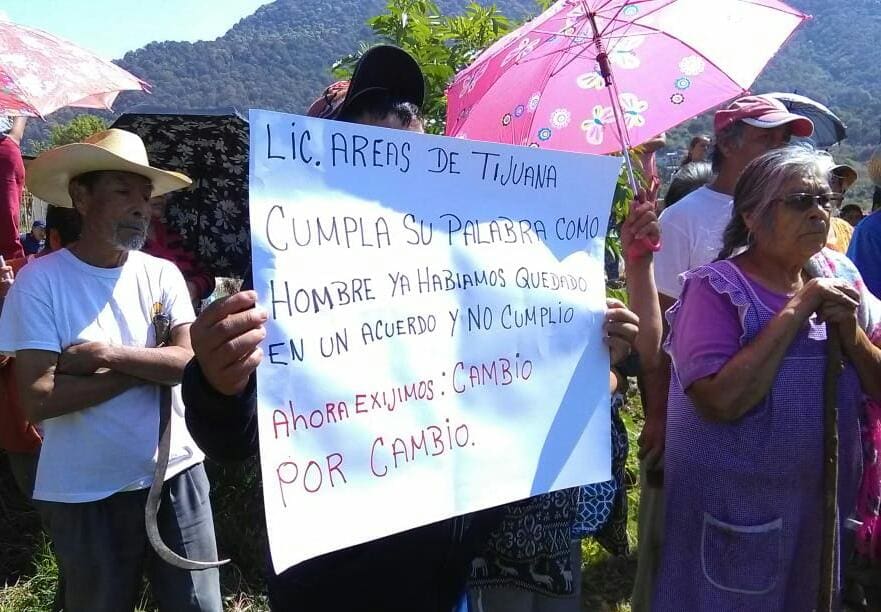 LIC. AREAS DE TIJUANA
CUMPLA SU PALABRA COMO
HOMBRE YA HABIAMOS QUEDADO
EN UN ACUERDO Y NO CUMPLIO
AHORA EXIJIMOS: CAMBIO
POR CAMBIO.